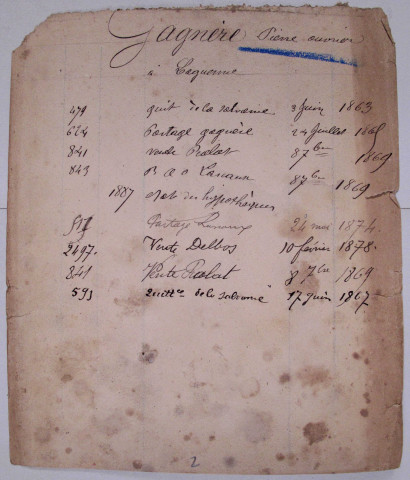 Gagnère Pierre ouvrier
à
479 quit de la salvanie 3 juin 1863
624 Partage gagnère 24 juillet 186
841 vente Pralat 8 7bre 1869
843 B a 8 7bre 1869
1887 état des hypothèques
Partage 24 mai 1874
2497. Vente Delbos 10 février 1878.
841 Vente Pralat 8 7bre 1869
593 quitt.ce de la salvanie 17 juin 1867
2